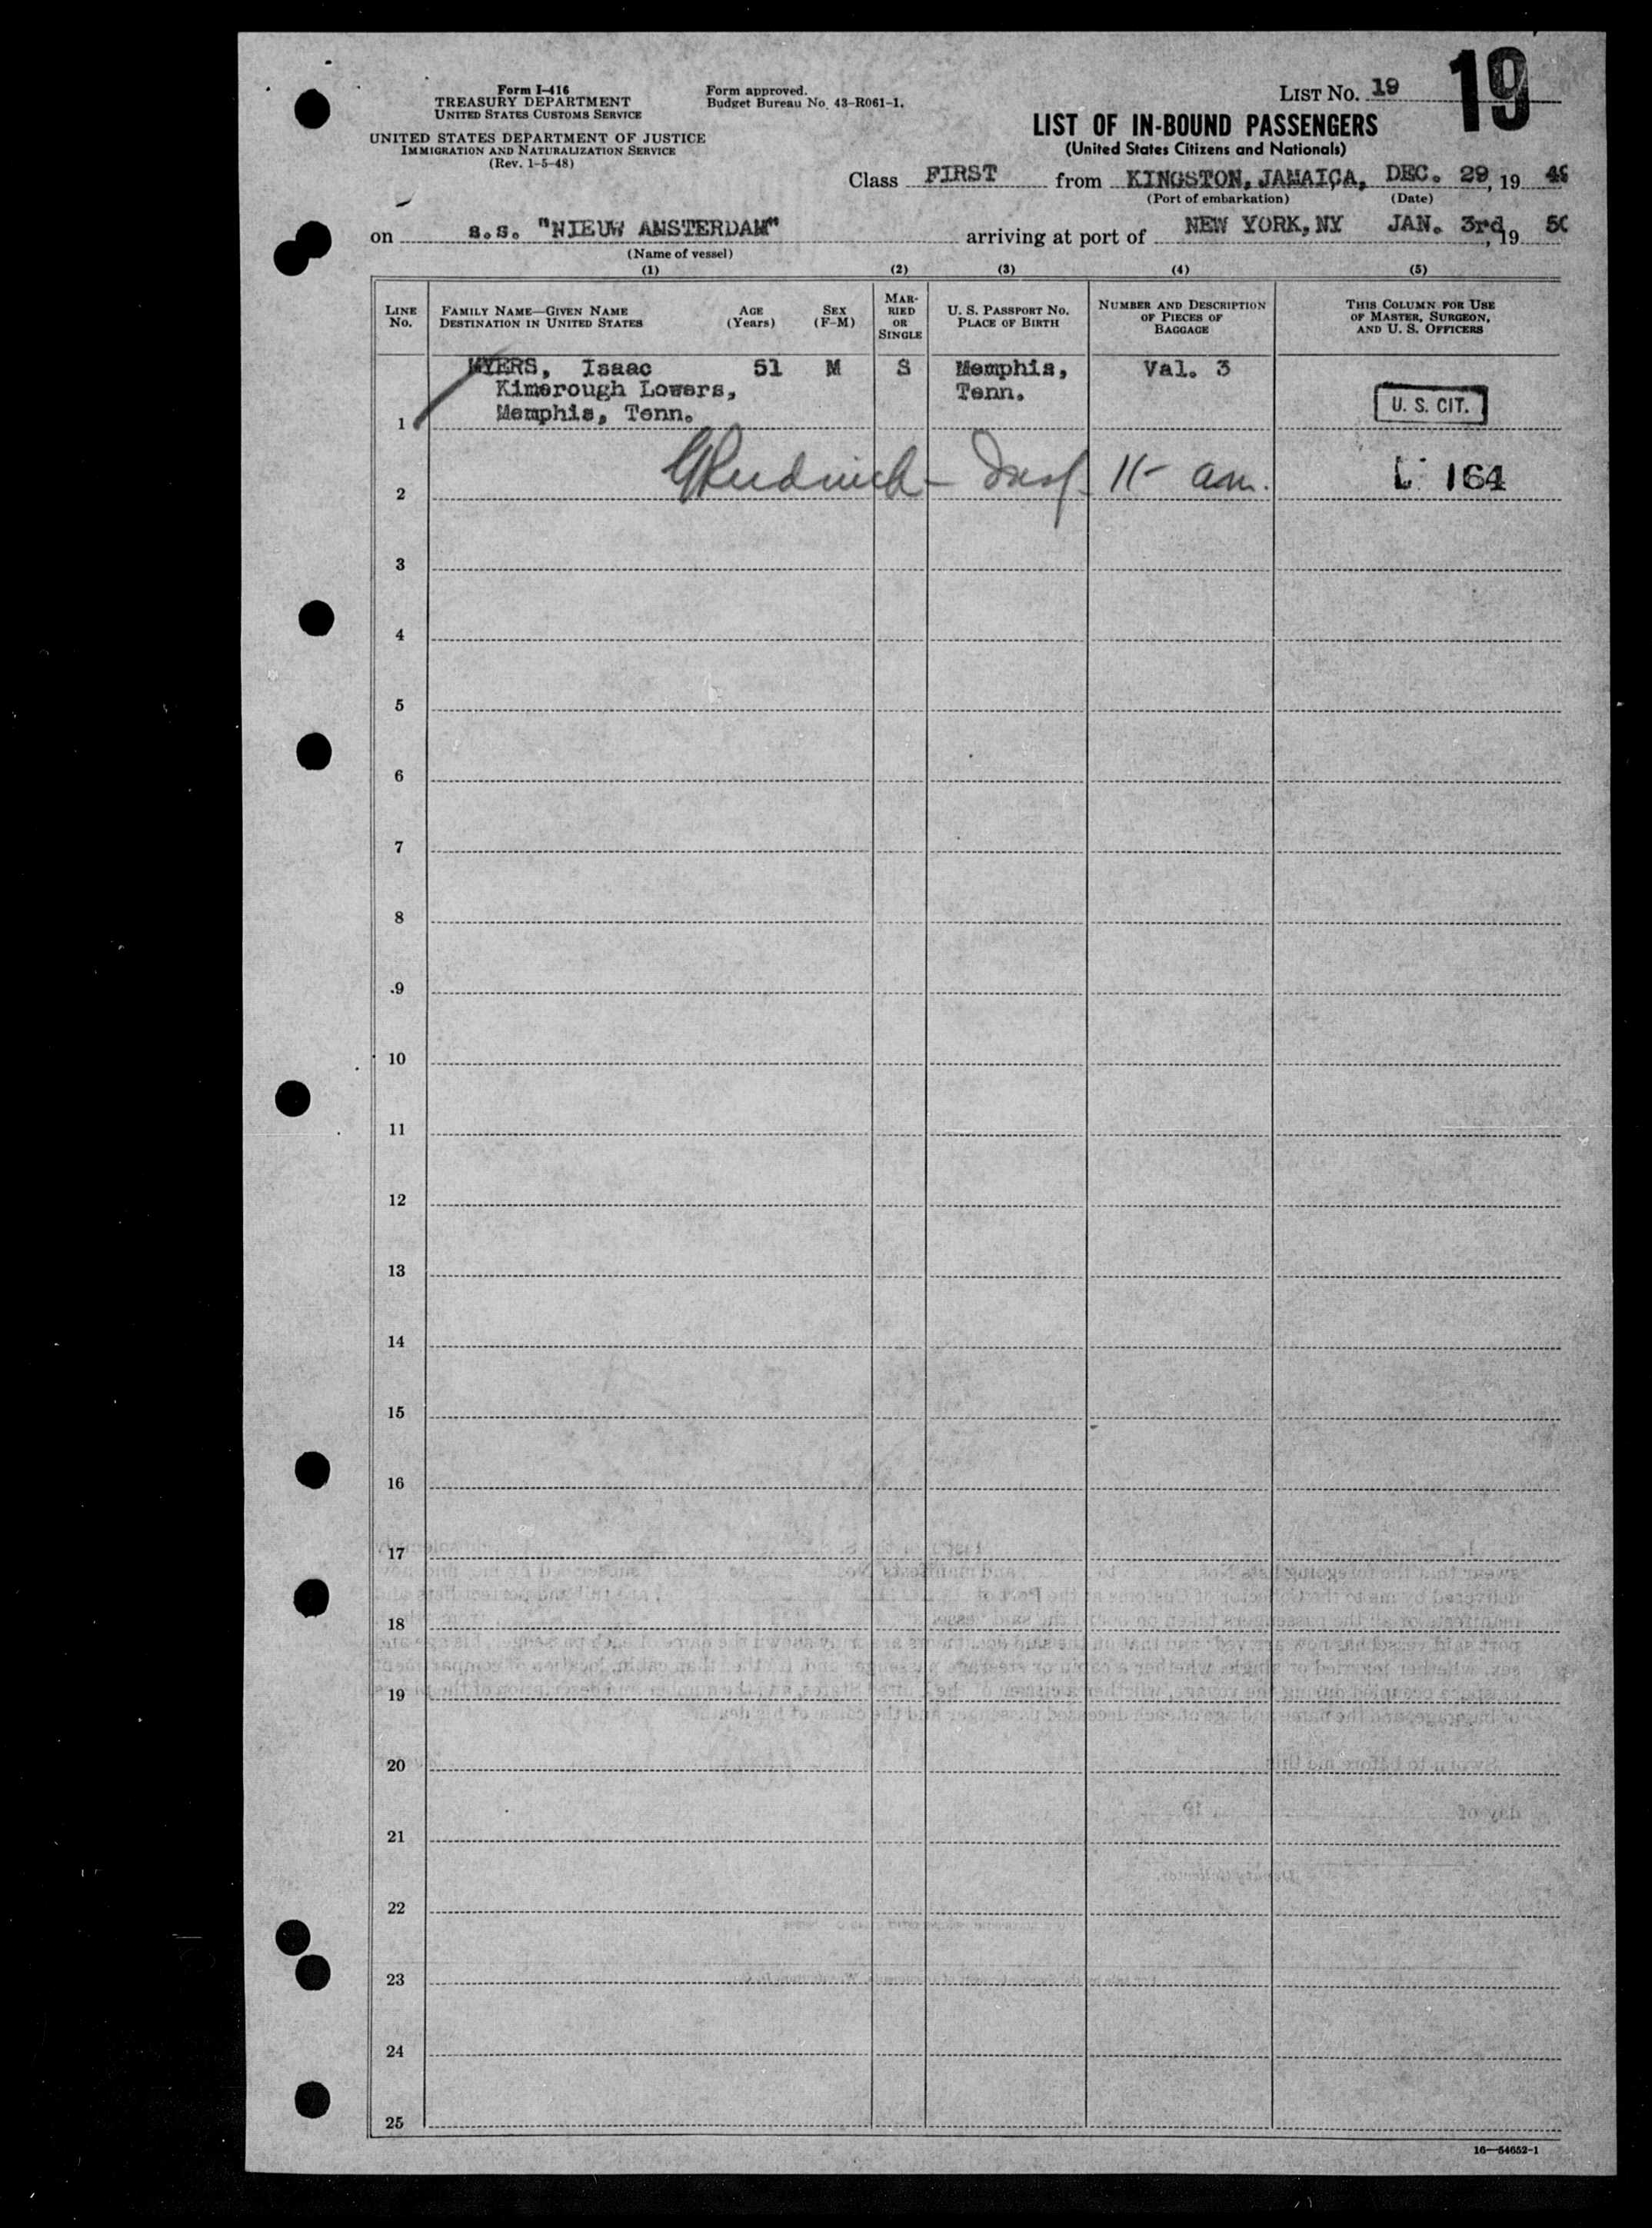 Form I-416
TREASURY DEPARTMENT
UNITED STATES CUSTOMS SERVICE
UNITED STATES DEPARTMENT OF JUSTICE
IMMIGRATION AND NATURALIZATION SERVICE
(Rev. 1-5-48)
Form approved.
Budget Bureau No. 43-R061-1.
LIST NO. 19
19
LIST OF IN-BOUND PASSENGERS
(United States Citizens and Nationals)
Class FIRST from KINGSTON, JAMAICA, DEC. 29, 19 49
(Port of embarkation) (Date)
on s.s. "NIEUW AMSTERDAM" arriving at port of NEW YORK, NY JAN. 3rd, 19 50
(Name of vessel)
(1) (2) (3) (4) (5)
LINE NO.
FAMILY NAME—GIVEN NAME
DESTINATION IN UNITED STATES
AGE (Years)
SEX (F-M)
MARRIED OR SINGLE
U. S. PASSPORT NO.
PLACE OF BIRTH
NUMBER AND DESCRIPTION OF PIECES OF BAGGAGE
THIS COLUMN FOR USE OF MASTER, SURGEON, AND U. S. OFFICERS
MYERS, Isaac 51 M S Memphis, Val. 3
Kimerough Lowers, Tenn.
1 Memphis, Tenn. U. S. CIT.
2 Insp 11- am. L 164
3
4
5
6
7
8
9
10
11
12
13
14
15
16
17
18
19
20
21
22
23
24
25
16—54652-1